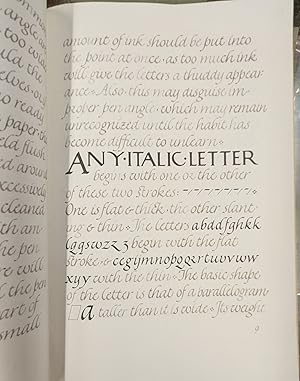 omm
too wide
ould
lves. o
o ready
paper th
eld flush
ed
ccessively
cleaned
th am
he pen
re will
l of the
part of
small
amount of ink should be put into
the point at once · as too much ink
will give the letters a thuddy appear
ance · Also, this may disguise im-
proper pen angle · which may remain
unrecognized until the habit has
become difficult to unlearn ·
ANY·ITALIC·LETTER
begins with one or the other
of these two strokes:
One is flat & thick, the other slant-
ing & thin · The letters abddfghkk
lqqswzz3 begin with the flat
stroke · & cegijmnopqrrtuvwvw
xyy with the thin · The basic shape
of the letter is that of a parallelogram·
a taller than it is wide · Its weight
9